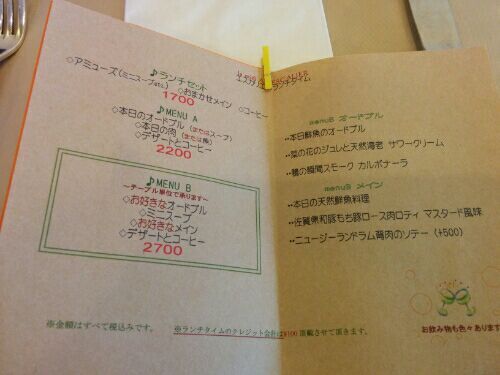 ♪ランチセット
◇アミューズ(ミニスープetc.) ◇おまかせメイン ◇コーヒー
1700
♪MENU A
◇本日のオードブル (またはスープ)
◇本日の肉 (または魚)
◇デザートとコーヒー
2200
♪MENU B
～テーブル単位で承ります～
◇お好きなオードブル
◇ミニスープ
◇お好きなメイン
◇デザートとコーヒー
2700
※金額はすべて税込みです。
※ランチタイムのクレジット会計は¥100 頂戴させて頂きます。
ランチタイム
menuB オードブル
··本日鮮魚のオードブル
··菜の花のジュレと天然海老 サワークリーム
··鴨の瞬間スモーク カルボナーラ
menuB メイン
··本日の天然鮮魚料理
··佐賀県和豚もち豚ロース肉ロティ マスタード風味
··ニュージーランドラム肩肉のソテー (+500)
お飲み物も色々あります